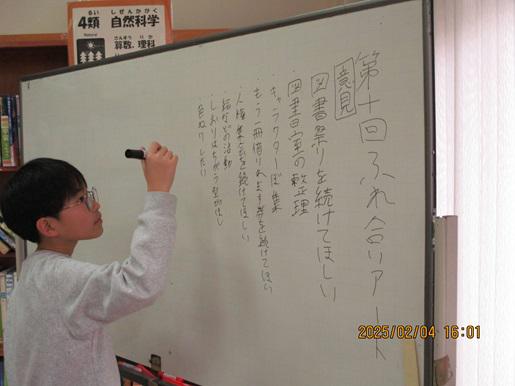 4類 自然科学
るい しぜんかがく
Natural
算数、理科
さんすう りか
第十回ふれ合リアート
意見
図書祭りを続けてほしい
図書室の整理
キャラクターぼ集
もう一冊借りれます券を続けてほしい
人権集会を続けてほしい
などの活動
しおりはちがう型がほし
色ぬりしたい
2025/02/04 16:01